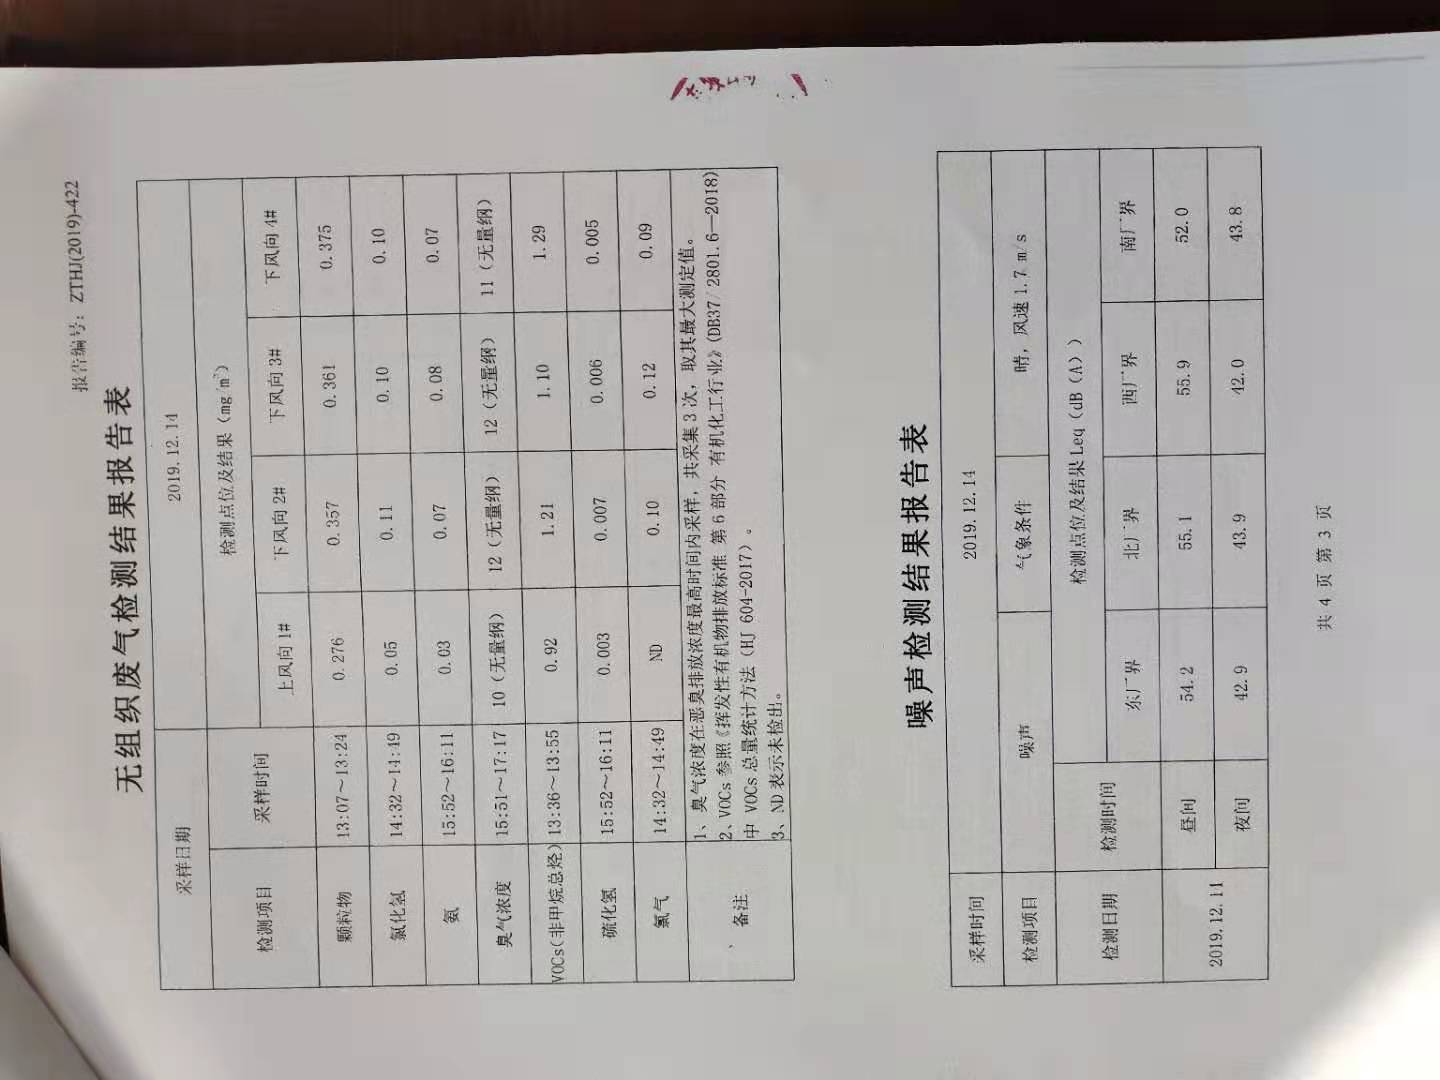 报告编号：ZTHJ(2019)-422
无组织废气检测结果报告表
采样日期 2019.12.14
检测项目 采样时间 检测点位及结果（mg/m³）
上风向 1# 下风向 2# 下风向 3# 下风向 4#
颗粒物 13:07～13:24 0.276 0.357 0.361 0.375
氯化氢 14:32～14:49 0.05 0.11 0.10 0.10
氨 15:52～16:11 0.03 0.07 0.08 0.07
臭气浓度 15:51～17:17 10（无量纲） 12（无量纲） 12（无量纲） 11（无量纲）
VOCs(非甲烷总烃) 13:36～13:55 0.92 1.21 1.10 1.29
硫化氢 15:52～16:11 0.003 0.007 0.006 0.005
氯气 14:32～14:49 ND 0.10 0.12 0.09
备注 1、臭气浓度在恶臭排放浓度最高时间内采样，共采集 3 次，取其最大测定值。
2、VOCs 参照《挥发性有机物排放标准 第 6 部分 有机化工行业》(DB37/ 2801.6—2018)
中 VOCs 总量统计方法（HJ 604-2017）。
3、ND 表示未检出。
噪声检测结果报告表
采样时间 2019.12.14
检测项目 噪声 气象条件 晴，风速 1.7 m/s
检测日期 检测时间 检测点位及结果 Leq（dB（A））
东厂界 北厂界 西厂界 南厂界
2019.12.11 昼间 54.2 55.1 55.9 52.0
夜间 42.9 43.9 42.0 43.8
共 4 页 第 3 页